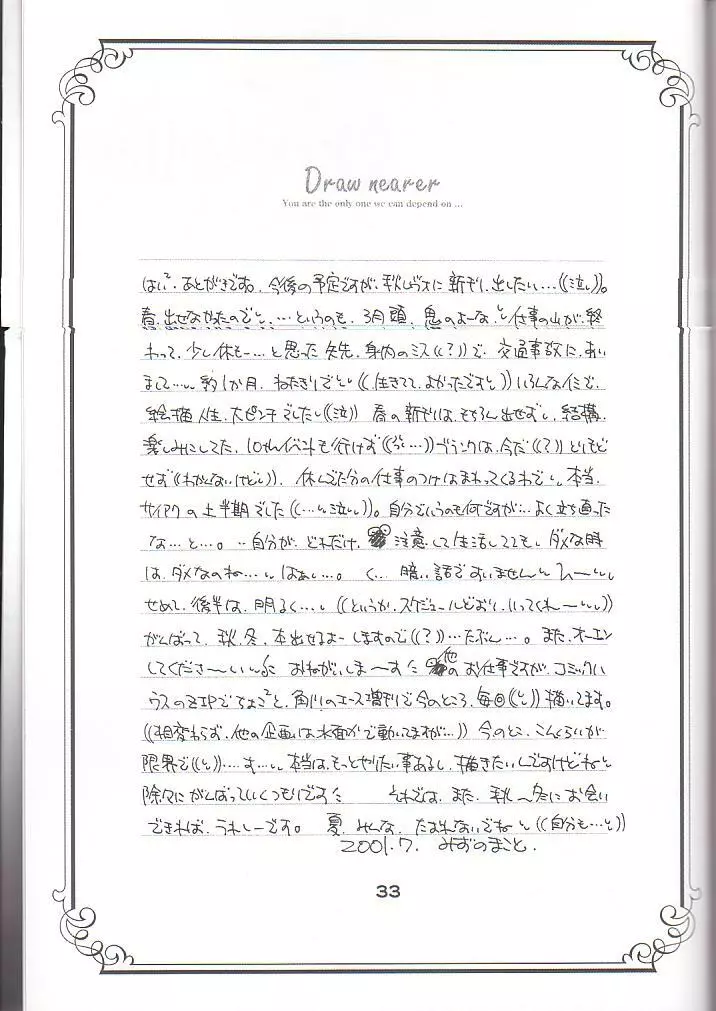 Draw nearer
You are the only one we can depend on ...
はい、あとがきです。今後の予定ですが、秋レヴォに新刊、出したい…((泣))。
春、出せなかったのでと、…というのも、3月頭、鬼のよーな、と仕事の山が、終
わって、少し休も−…と思った矢先、身内のミス((?))で、交通事故に、あい
まして…、約1か月、ねたきりでと((生きてて、よかったですと))いろんなイミで、
絵描人生、大ピンチでした((泣)) 春の新刊は、もちろん出せずし、結構、
楽しみにしてた、イベントも行けず ブランクは、今だ((?))ともど
せず((わかんないけど))、休んでた分の仕事のつけはまわってくるわで、本当、
サイアクの上半期でした((…泣))。自分でいうのも何ですが…よく立ち直った
な…と…。‥自分が、どれだけ、注意して生活してても、ダメな時
は、ダメなのね…、はぁ…。く…暗い話ですいません
せめて、後半は、明るく… ((というか、スケジュールどおり、いってくれ〜))
がんばって、秋、冬、本出せるよーしますので((?))…たぶん…。また、オーエン
してくださ〜い おねがいしま〜す 他のお仕事ですが、コミックハ
ウスのZIPでちょこと、角川のエース増刊で今のところ、毎回 描いてます。
((相変わらず、他の企画は水面かで動いてますが…)) 今のとこ、こんくらいが
限界で 本当は、もっとやりたい事あるし、描きたいんですけどねと
除々にがんばっていくつもりです それでは、また、秋〜冬にお会い
できれば、うれしーです。 夏、みんな、たおれないでねと((自分も…と))
2001.7. みずのまこと.
33